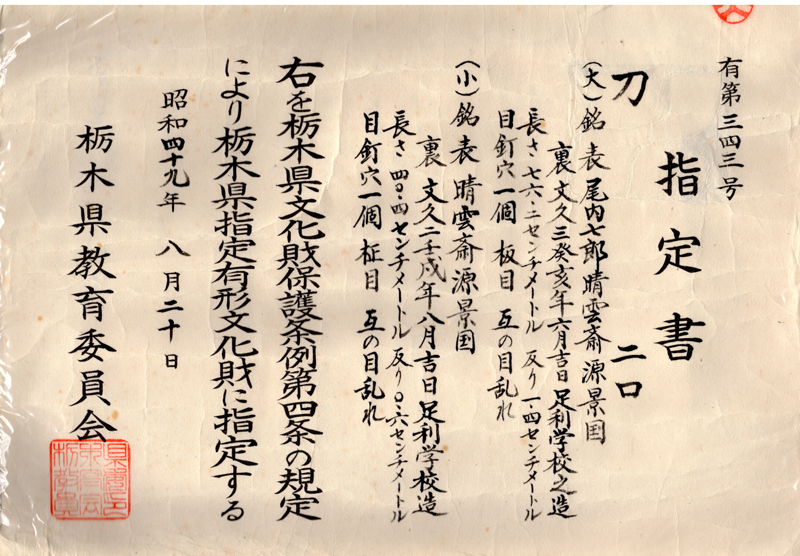 有第三四三号
指定書
刀 二口
(大)銘 表 尾内七郎晴雲斎源景国
裏 文久三癸亥年六月吉日 足利学校之造
長さ 七六・二センチメートル 反り 一・四センチメートル
目釘穴一個 板目 互の目乱れ
(小)銘 表 晴雲斎源景国
裏 文久二壬戌年八月吉日 足利学校造
長さ 四〇・四センチメートル 反り 〇・六センチメートル
目釘穴一個 柾目 互の目乱れ
右を栃木県文化財保護条例第四条の規定
により栃木県指定有形文化財に指定する
昭和四十九年 八月二十日
栃木県教育委員会